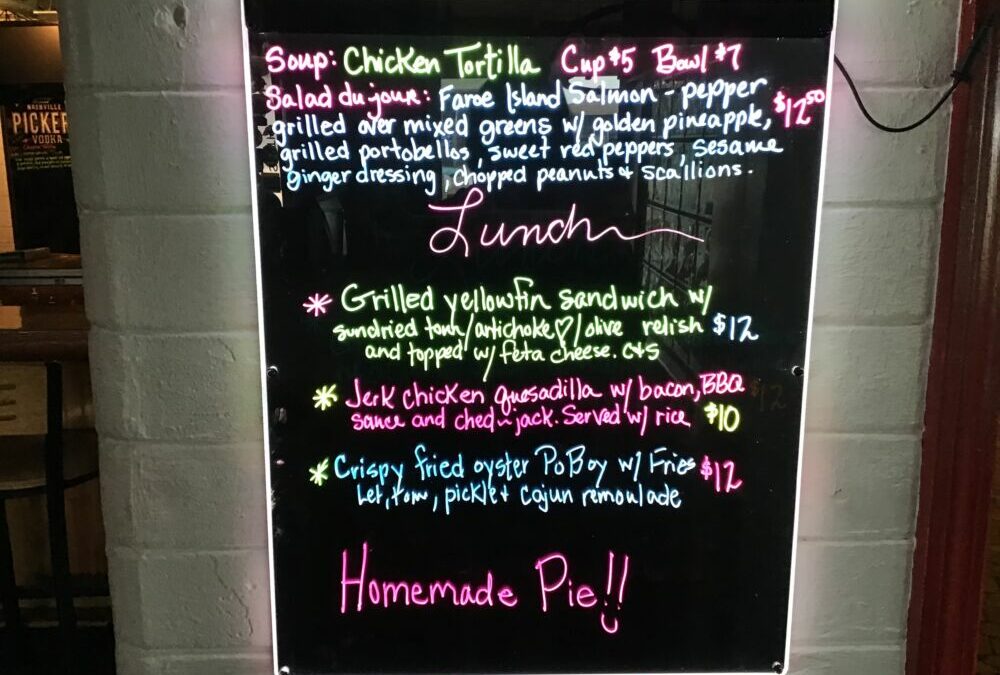 Soup: Chicken Tortilla Cup $5 Bowl $7
Salad du jour: Faroe Island Salmon - pepper
grilled over mixed greens w/ golden pineapple, $12.50
grilled portobellos, sweet red peppers, sesame
ginger dressing, chopped peanuts + scallions.
Lunch
* Grilled yellowfin sandwich w/
sundried tom/artichoke♡/olive relish $12
and topped w/ feta cheese. c+s
* Jerk chicken quesadilla w/ bacon, BBQ
sauce and ched-jack. Served w/ rice $10
* Crispy fried oyster PoBoy w/ Fries $12
Let, tom, pickle + cajun remoulade
Homemade Pie!!
NASHVILLE
PICKER
VODKA